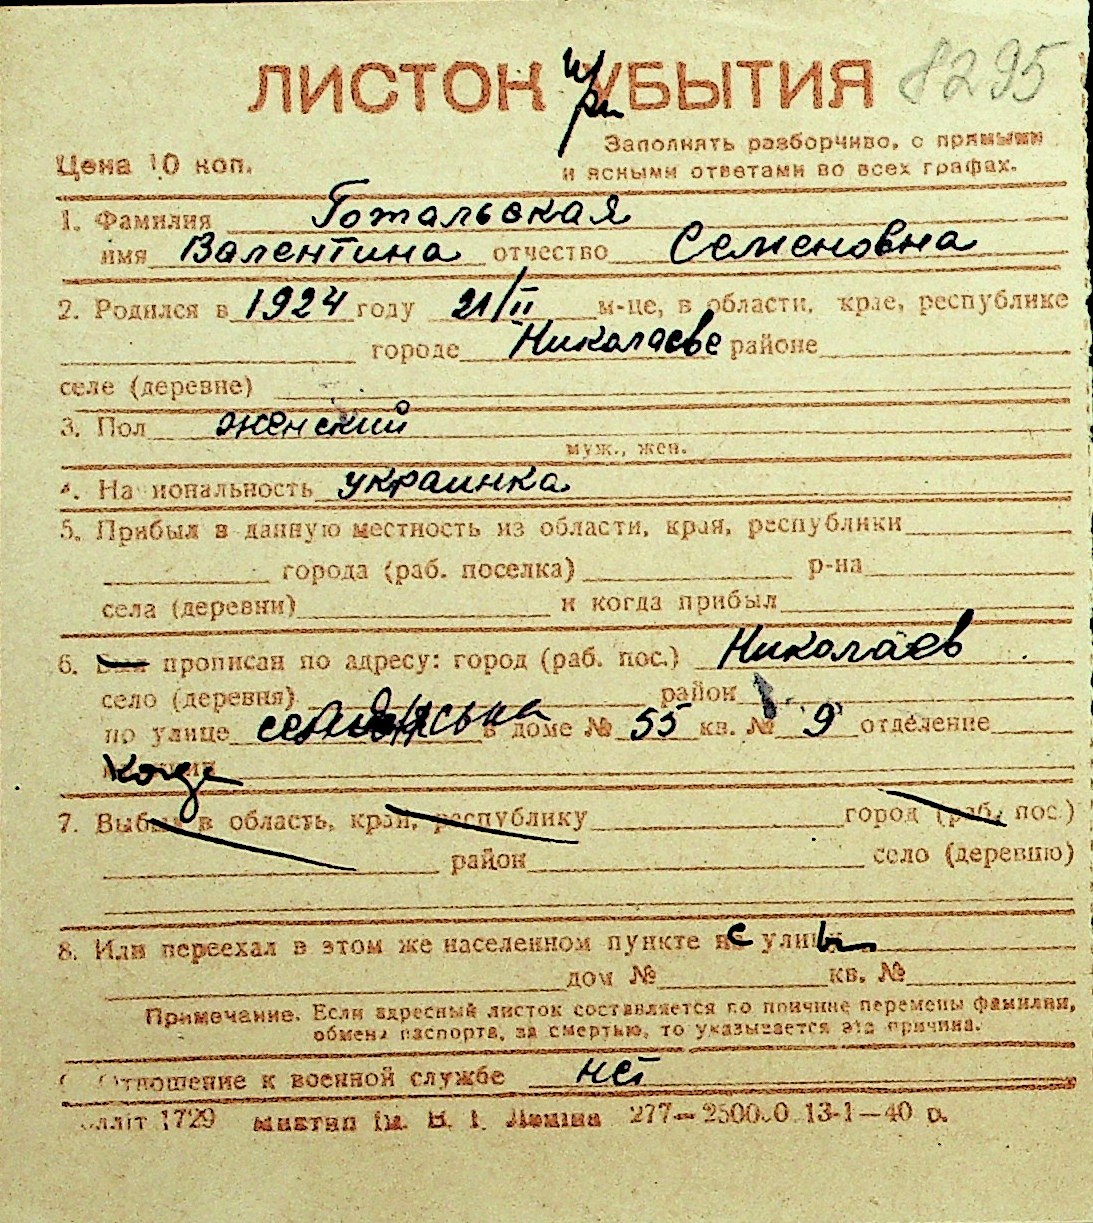 ЛИСТОК УБЫТИЯ 8295
при
Заполнять разборчиво, с прямыми
Цена 10 коп. и ясными ответами во всех графах.
1. Фамилия Готальская
имя Валентина отчество Семеновна
2. Родился в 1924 году 21/II м-це, в области, крае, республике
городе Николаеве районе
селе (деревне)
3. Пол женский
муж., жен.
4. Национальность украинка
5. Прибыл в данную местность из области, края, республики
города (раб. поселка) р-на
села (деревни) и когда прибыл
6. Был прописан по адресу: город (раб. пос.) Николаев
село (деревня) район
по улице в доме № 55 кв. № 9 отделение
7. Выбыл в область, край, республику город (раб. пос.)
район село (деревню)
8. Или переехал в этом же населенном пункте с улицы
дом № кв. №
Примечание. Если адресный листок составляется по причине перемены фамилии,
обмена паспорта, за смертью, то указывается эта причина.
Отношение к военной службе нет
лліт 1729 ім. В. І. Леніна 277—2500.0 13-1—40 р.